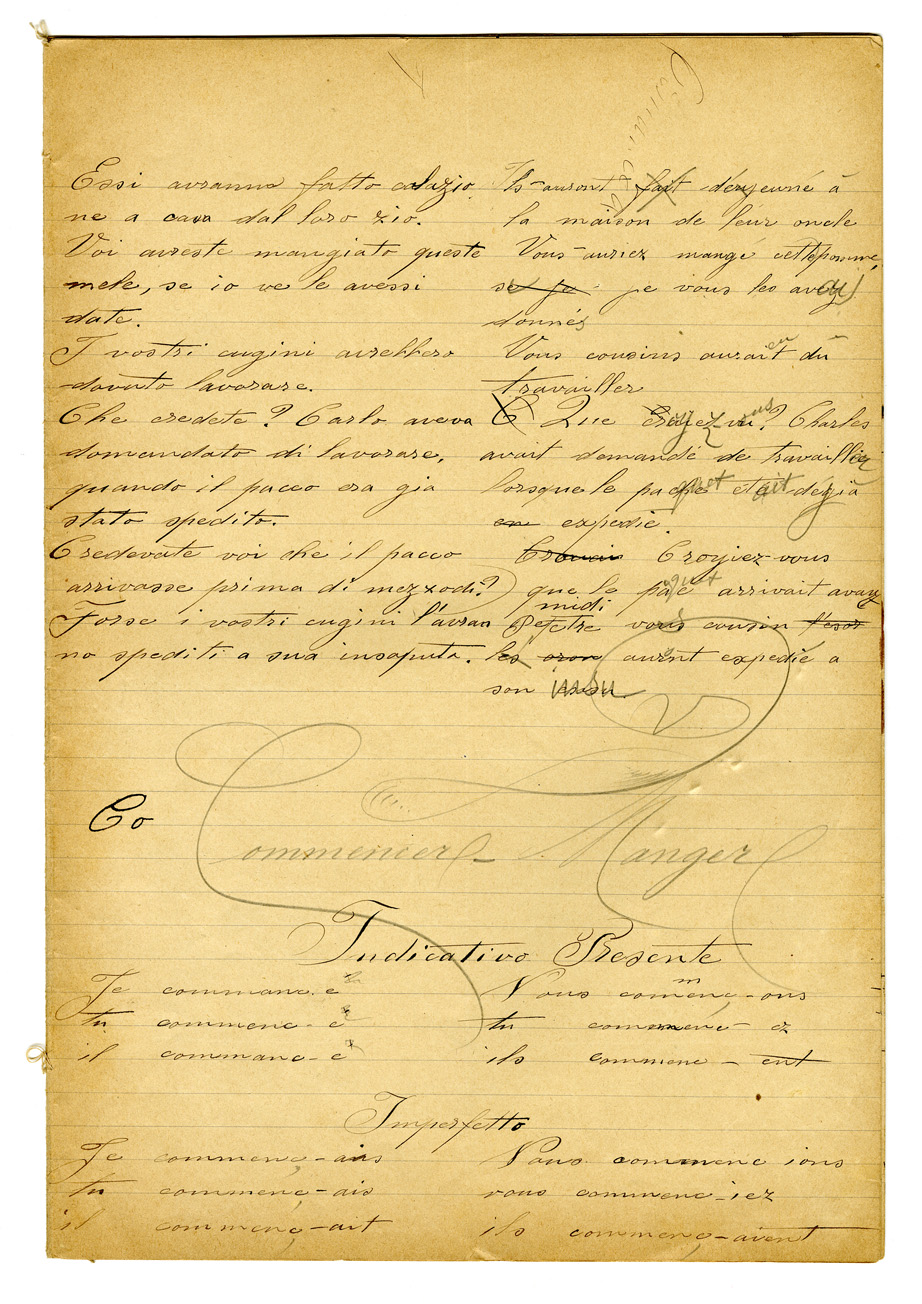 Essi avranno fatto colazio
ne a casa dal loro zio.
Voi avreste mangiato queste
mele, se io ve le avessi
date.
I vostri cugini avrebbero
dovuto lavorare.
Che credete? Carlo aveva
domandato di lavorare,
quando il pacco era gia
stato spedito.
Credevate voi che il pacco
arrivasse prima di mezzodi?
Forse i vostri cugini l'avran
no spediti a sua insaputa.
Ils auront fait dezjeuné à
la maison de leur oncle
Vous auriez mangé cette pomme,
se je je vous les avez
donnés
Vous cousins auraient du
travailler
C Que croyez-vous? Charles
avait demandé de travailler
lorsque le paquet était dezjà
en expedié
Croyiez-vous
que le paquet arrivait avan
midi
Petetre vous cousin
les auront expedié a
son insu
Co
Commencer - Manger
Indicativo Presente
Je commanc. e
tu commenc - e
il commanc - e
Nous commenç - ons
tu commenc - ez
ils commenc - ent
Imperfetto
Je commenç - ais
tu commenç - ais
il commenç - ait
Nous commenc ions
vous commenc - iez
ils commenç - aient